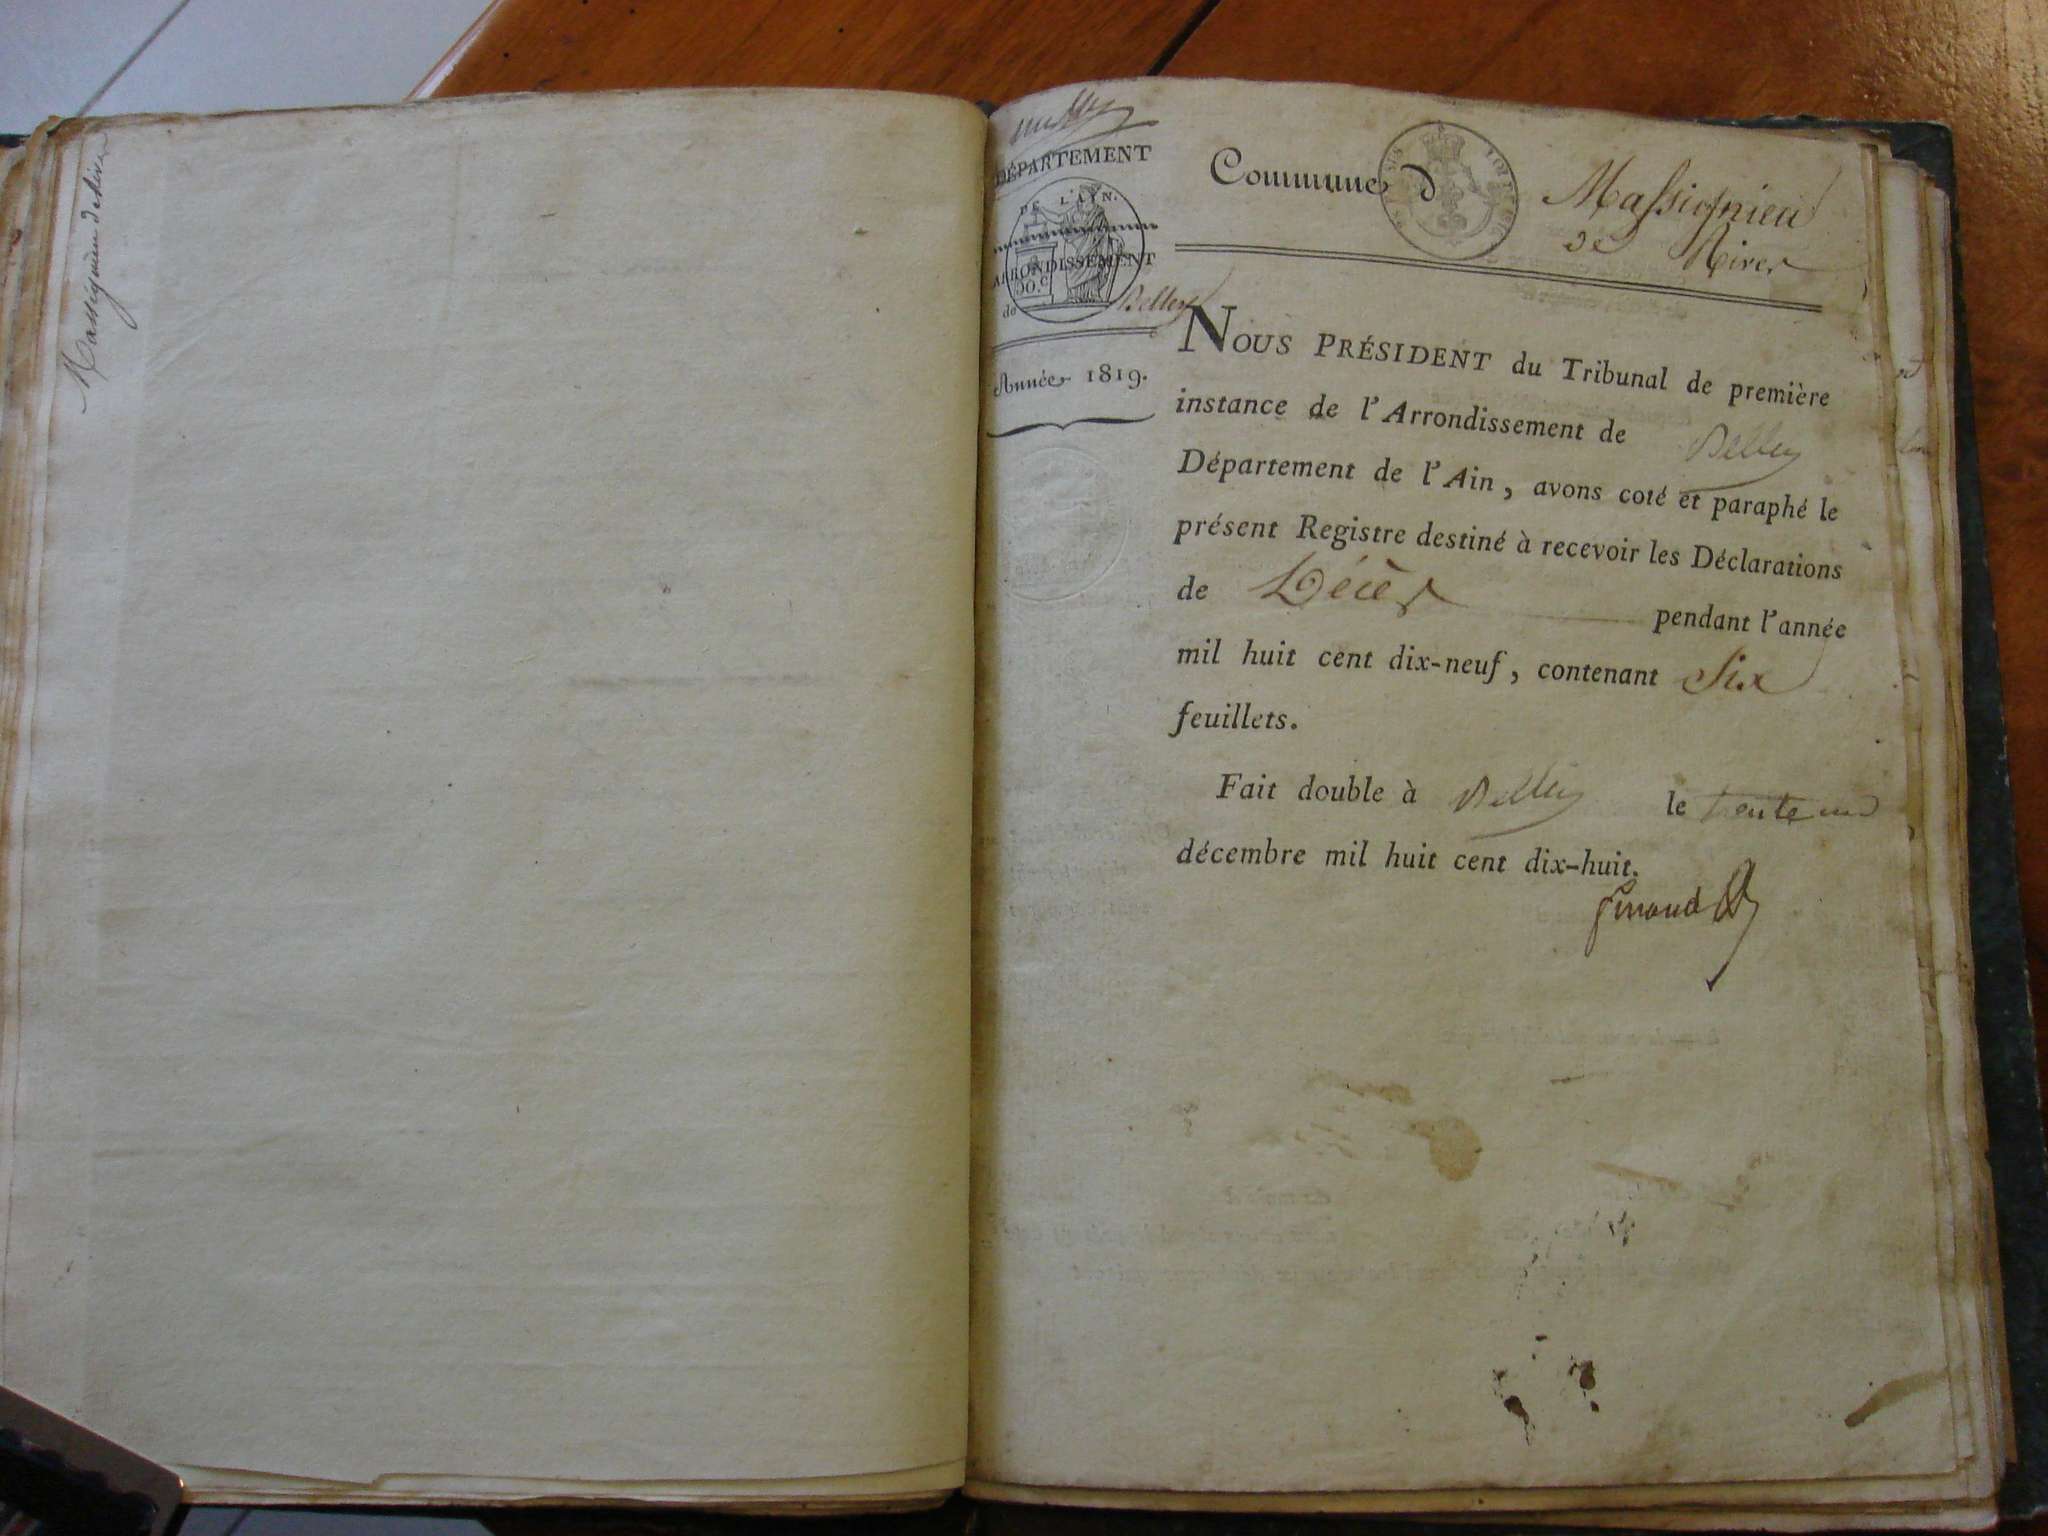 Massignieu de Rives
DÉPARTEMENT
DE L'AIN.
ARRONDISSEMENT
50.c
de Belley
Année 1819.
Commune d Massignieu
de Rives
NOUS PRÉSIDENT du Tribunal de première
instance de l'Arrondissement de Belley
Département de l'Ain, avons coté et paraphé le
présent Registre destiné à recevoir les Déclarations
de Décès pendant l'année
mil huit cent dix-neuf, contenant Six
feuillets.
Fait double à Belley le trente un
décembre mil huit cent dix-huit.